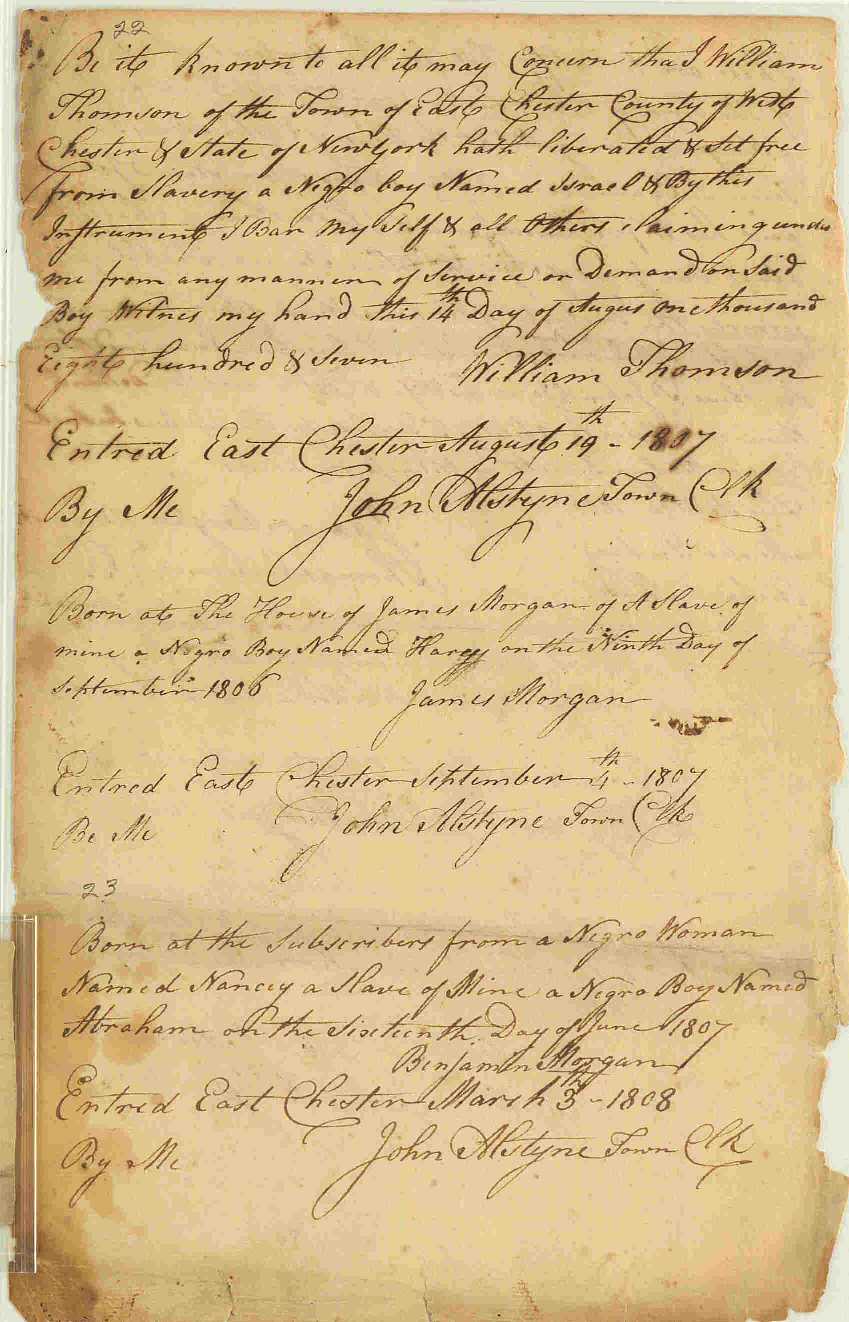 22
Be it known to all it may Concern tha I William
Thomson of the Town of East Chester County of West
Chester & State of Newyork hath liberated & Set free
from Slavery a Negro boy Named Israel & By this
Instrument I Bar my Self & all Others claiming under
me from any manner of Service or Demand on Said
Boy Witnes my hand this 14th Day of Augus one thousand
Eight hundred & Seven William Thomson
Entred East Chester August 19th - 1807
By Me John Alstyne Town Clk
Born at The House of James Morgan of A Slave of
mine a Negro Boy Named Harry on the Ninth Day of
September 1806 James Morgan
Entred East Chester September 4th - 1807
Be Me John Alstyne Town Clk
23
Born at the Subscribers from a Negro Woman
Named Nancey a Slave of Mine a Negro Boy Named
Abraham on the Sixteenth Day of June 1807
Benjamin Morgan
Entred East Chester March 3th - 1808
By Me John Alstyne Town Clk